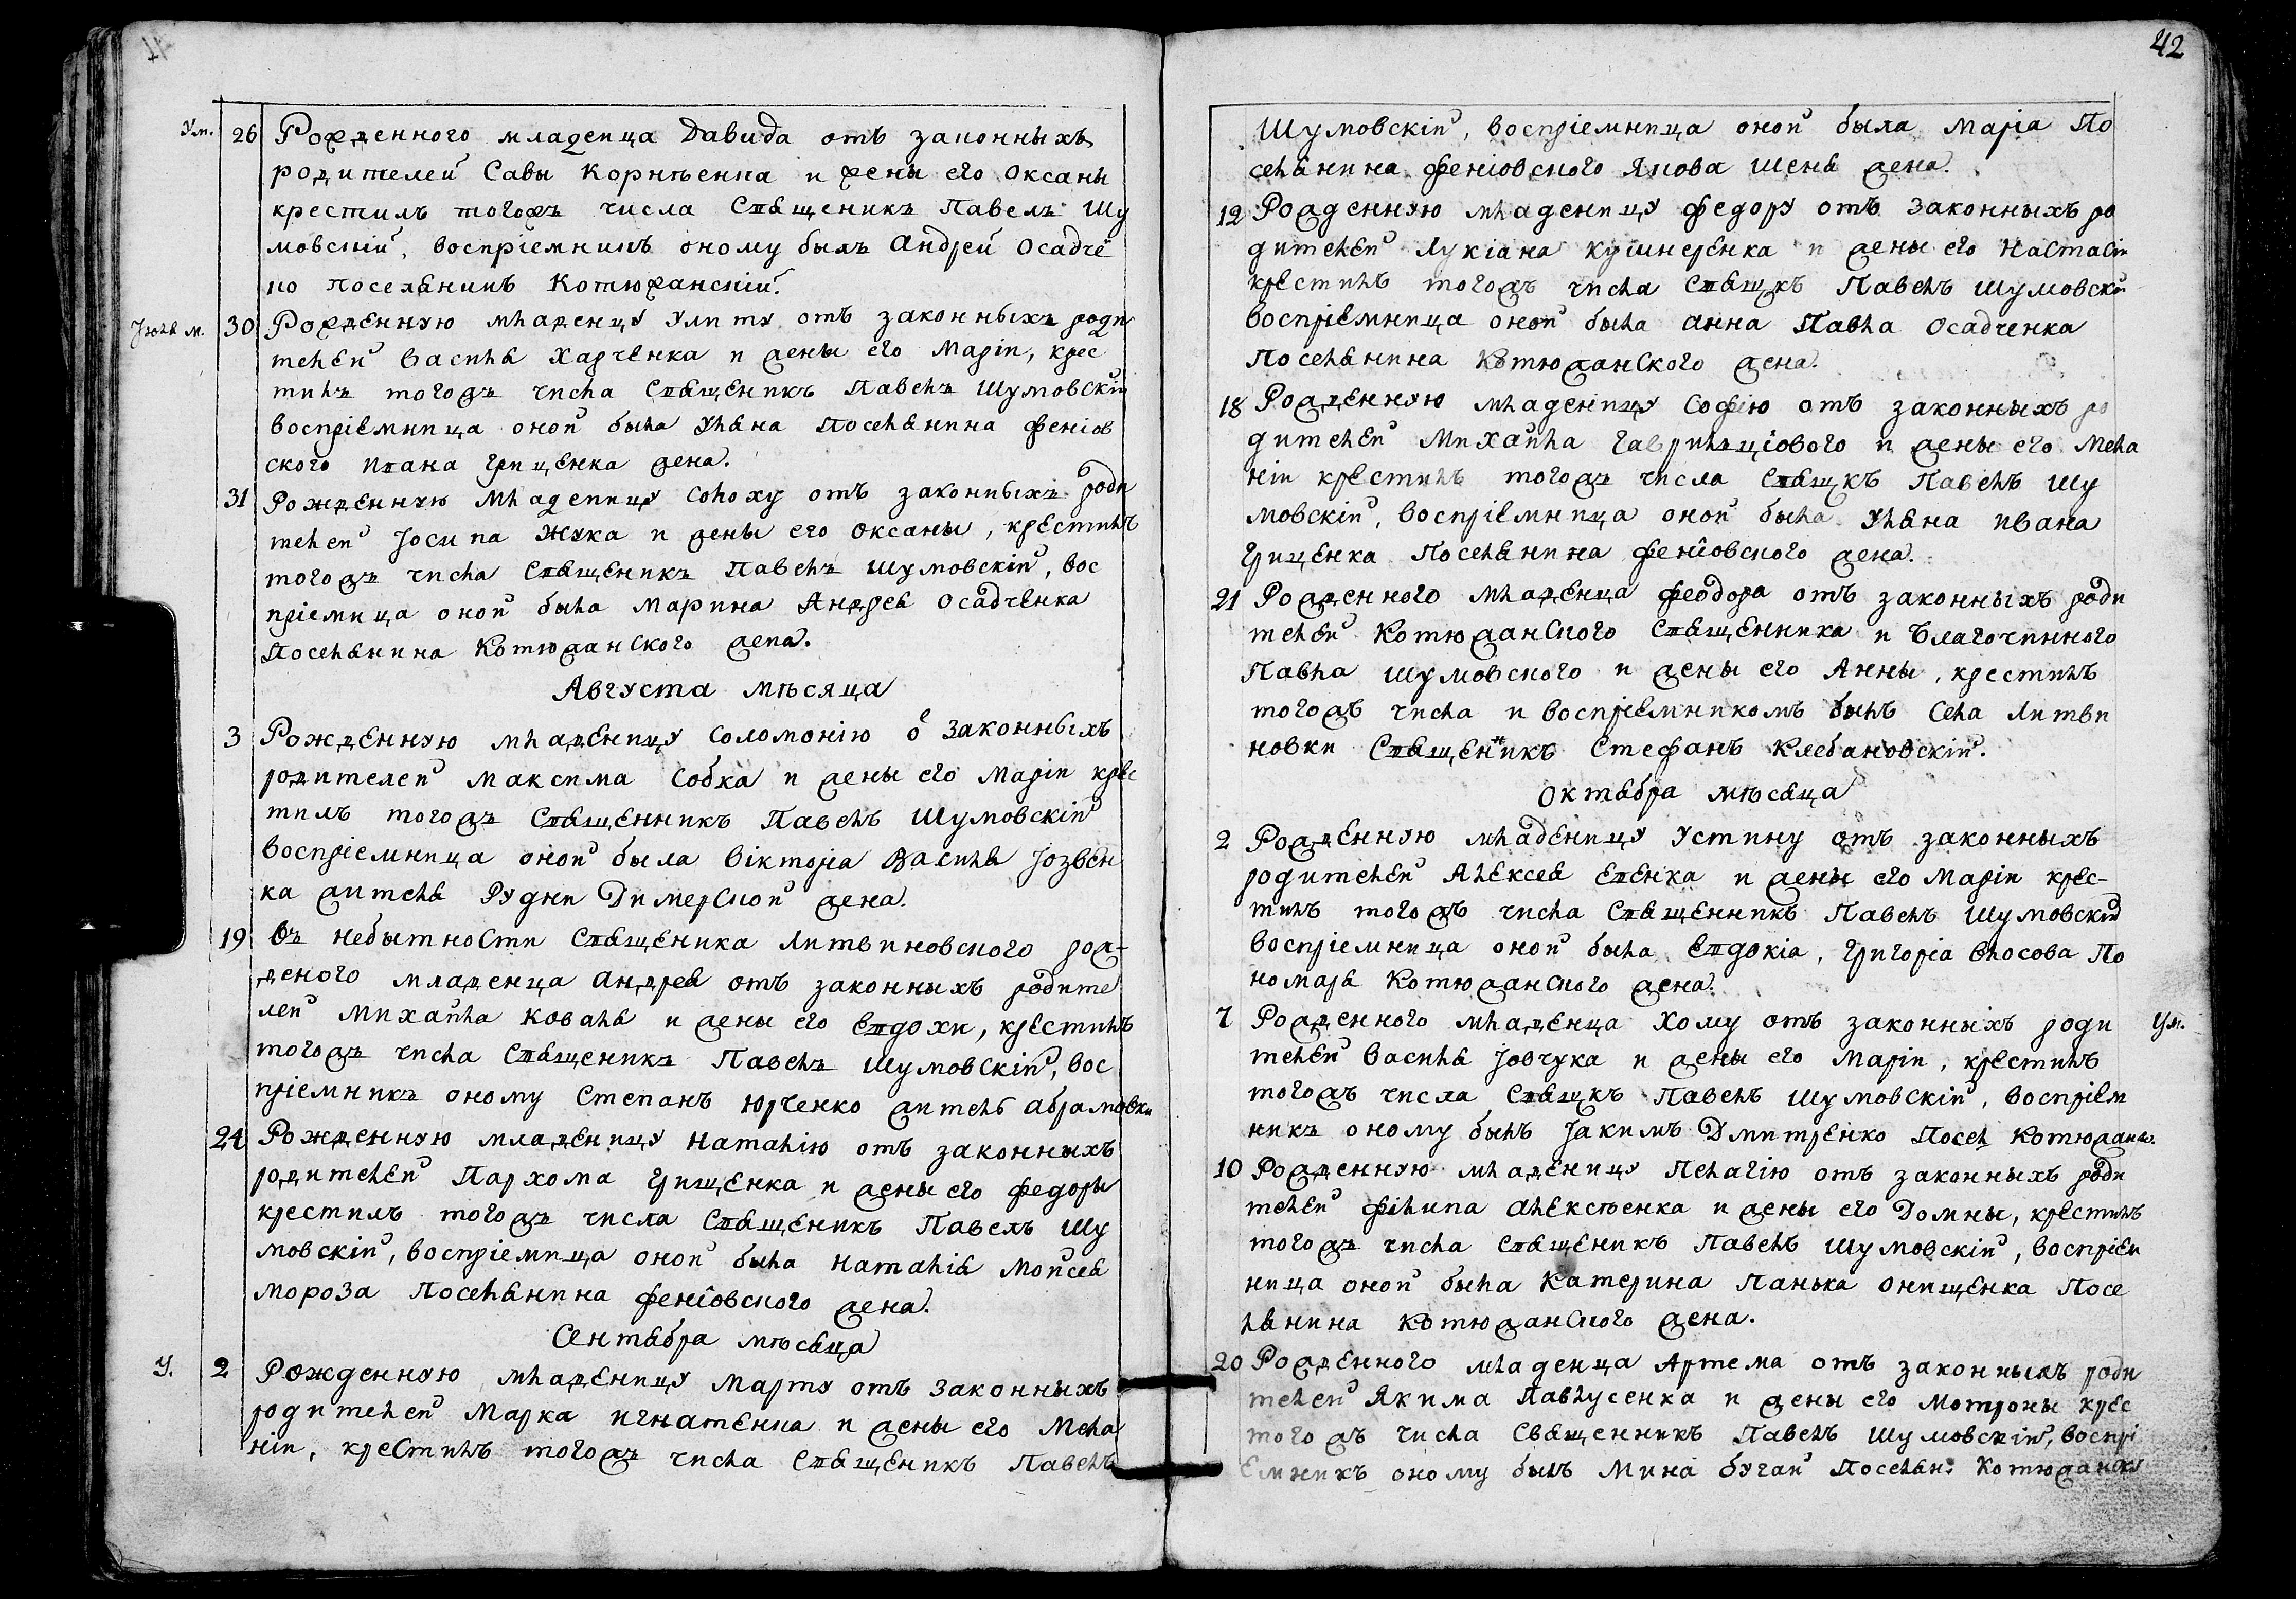 42
Ум. 26 Рожденного младенца Давида отъ законныхъ
родителей Савы Корнѣенка и жены его Оксаны
крестилъ тогожъ числа Священикъ Павелъ Шу
мовскій, воспріемникъ оному былъ Андрей Осадче
но поселянинъ Котюжанскій.
Іюля м. 30 Рожденную младенцу Улиту отъ законныхъ роди
телей Василя Харченка и жены его Маріи, крес
тилъ тогожъ числа Священикъ Павелъ Шумовскій
воспріемница оной была Уляна Поселянина Феніов
ского Ивана Грищенка жена.
31 Рожденную младеницу Солоху отъ законныхъ роди
телей Іосипа Жука и жены его Оксаны, крестилъ
тогожъ числа Священикъ Павелъ Шумовскій, вос
пріемица оной была Марина Андрея Осадченка
Поселянина Котюжанского жена.
Августа мѣсяца
3 Рожденную младеницу Соломонію о законныхъ
родителей Максима Собка и жены его Маріи крес
тилъ тогожъ Священникъ Павелъ Шумовскій
воспріемница оной была Вікторіа Василя Іозвен
ка жителя Рудни Димерской жена.
19 Въ небытности Священика Литвиновского рож-
деного младенца Андрея отъ законныхъ родите
лей Михайла Коваля и жены его Евдохи, крестилъ
тогожъ числа Священикъ Павелъ Шумовскій, вос
пріемникъ оному Степанъ Юрченко житель Абрамовки
24 Рожденную младеницу Наталію отъ законныхъ
родителей Пархома Грищенка и жены его Федоры
крестилъ тогожъ числа Священикъ Павелъ Шу
мовскій, воспріемница оной была Наталія Мойсея
Мороза Поселянина Феніовского жена.
Сентября мѣсяца
У. 2 Рожденную младеницу Марту отъ законныхъ
родителей Марка Игнатенка и жены его Мела
ніи, крестилъ тогожъ числа Священикъ Павелъ
Шумовскій, воспріемница оной была Маріа По
селянина Феніовского Якова Шеня жена.
12 Рожденную младеницу Федору отъ законныхъ ро
дителей Лукіана Кушнеренка и жены его Настасіи
крестилъ тогожъ числа Свящкъ Павелъ Шумовскій
воспріемница оной была Анна Павла Осадченка
Поселянина Котюжанского жена.
18 Рожденную младеницу Софію отъ законныхъ ро
дителей Михайла Гаврильціового и жены его Мела
ніи крестилъ тогожъ числа Свящкъ Павелъ Шу
мовскій, воспріемница оной была Уляна Ивана
Грищенка Поселянина Феніовского жена.
21 Рожденного младенца Феодора отъ законныхъ роди
телей Котюжанского Священника и Благочинного
Павла Шумовского и жены его Анны, крестилъ
тогожъ числа и воспріемникомъ былъ Села Литви
новки Священникъ Стефанъ Клебановскій.
Октября мѣсяца
2 Рожденную младеницу Устину отъ законныхъ
родителей Алексея Евенка и жены его Маріи крес-
тилъ тогожъ числа Священникъ Павелъ Шумовскій
воспріемница оной была Евдокіа, Григоріа Власова По
номаря Котюжанского жена.
7 Рожденного младенца Хому отъ законныхъ роди Ум.
телей Василя Іовчука и жены его Маріи, крестилъ
тогожъ числа Свящкъ Павелъ Шумовскій, воспріем
никъ оному былъ Іакимъ Дмитренко Посел Котюжанс.
10 Рожденную младеницу Пелагію отъ законныхъ роди
телей Філипа Алексѣенка и жены его Домны, крестилъ
тогожъ числа Священикъ Павелъ Шумовскій, воспріем
ница оной была Катерина Панька Онищенка Посе
лянина Котюжанского жена.
20 Рожденного младенца Артема отъ законныхъ роди
телей Якима Павлусенка и жены его Мотроны крес
тогожъ числа Священникъ Павелъ Шумовскій, воспрі
емникъ оному былъ Мина Бугай Поселян: Котюжанскй